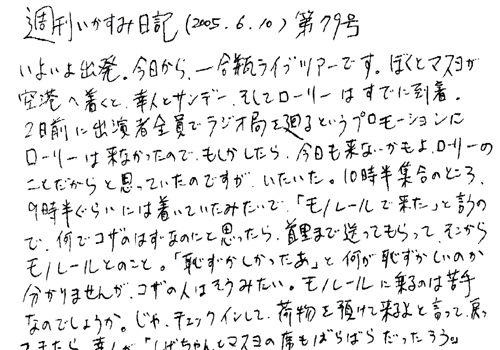 週刊いかすみ日記(2005.6.10)第79号
いよいよ出発。今日から、一合瓶ライブツアーです。ぼくとマスヨが
空港へ着くと、幸人とサンデー、そしてローリーはすでに到着。
2日前に出演者全員でラジオ局を廻るというプロモーションに
ローリーは来なかったので、もしかしたら、今日も来ないかもよ、ローリーの
ことだからと思っていたのですが、いたいた。10時半集合のところ、
9時半ぐらいには着いていたみたいで、「モノレールで来た」と言うの
で、何でコザのはずなのにと思ったら、首里まで送ってもらって、そこから
モノレールとのこと。「恥ずかしかったあ」と何が恥ずかしいのか
分かりませんが、コザの人はそうみたい。モノレールに乗るのは苦手
なのでしょうか。じゃ、チェックインして、荷物を預けて来るよと言って、戻っ
てきたら、幸人が「しげちゃんとマスヨの席もばらばらだったろう。